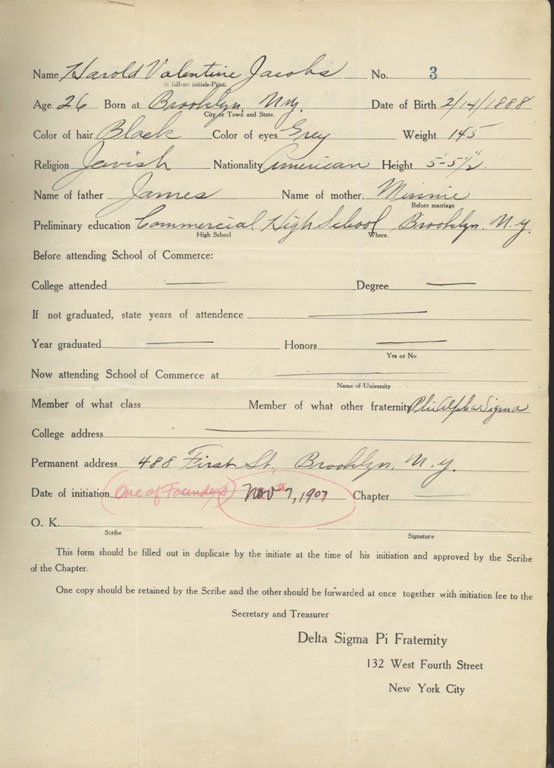 Name Harold Valentine Jacobs No. 3
in full-no initials-Print.
Age 26 Born at Brooklyn, N.y. Date of Birth 2/14/1888
City or Town and State.
Color of hair Black Color of eyes Grey Weight 145
Religion Jewish Nationality American Height 5'-5½"
Name of father James Name of mother. Minnie
Before marriage
Preliminary education Commercial High School, Brooklyn. N.y.
High School Where.
Before attending School of Commerce:
College attended Degree
If not graduated, state years of attendence
Year graduated Honors
Yes or No
Now attending School of Commerce at
Name of University
Member of what class Member of what other fraternity Phi Alpha Sigma
College address
Permanent address 488 First St. Brooklyn, N.y.
Date of initiation (One of Founders) Nov 7, 1907 Chapter
O. K.
Scribe Signature
This form should be filled out in duplicate by the initiate at the time of his initiation and approved by the Scribe
of the Chapter.
One copy should be retained by the Scribe and the other should be forwarded at once together with initiation fee to the
Secretary and Treasurer
Delta Sigma Pi Fraternity
132 West Fourth Street
New York City